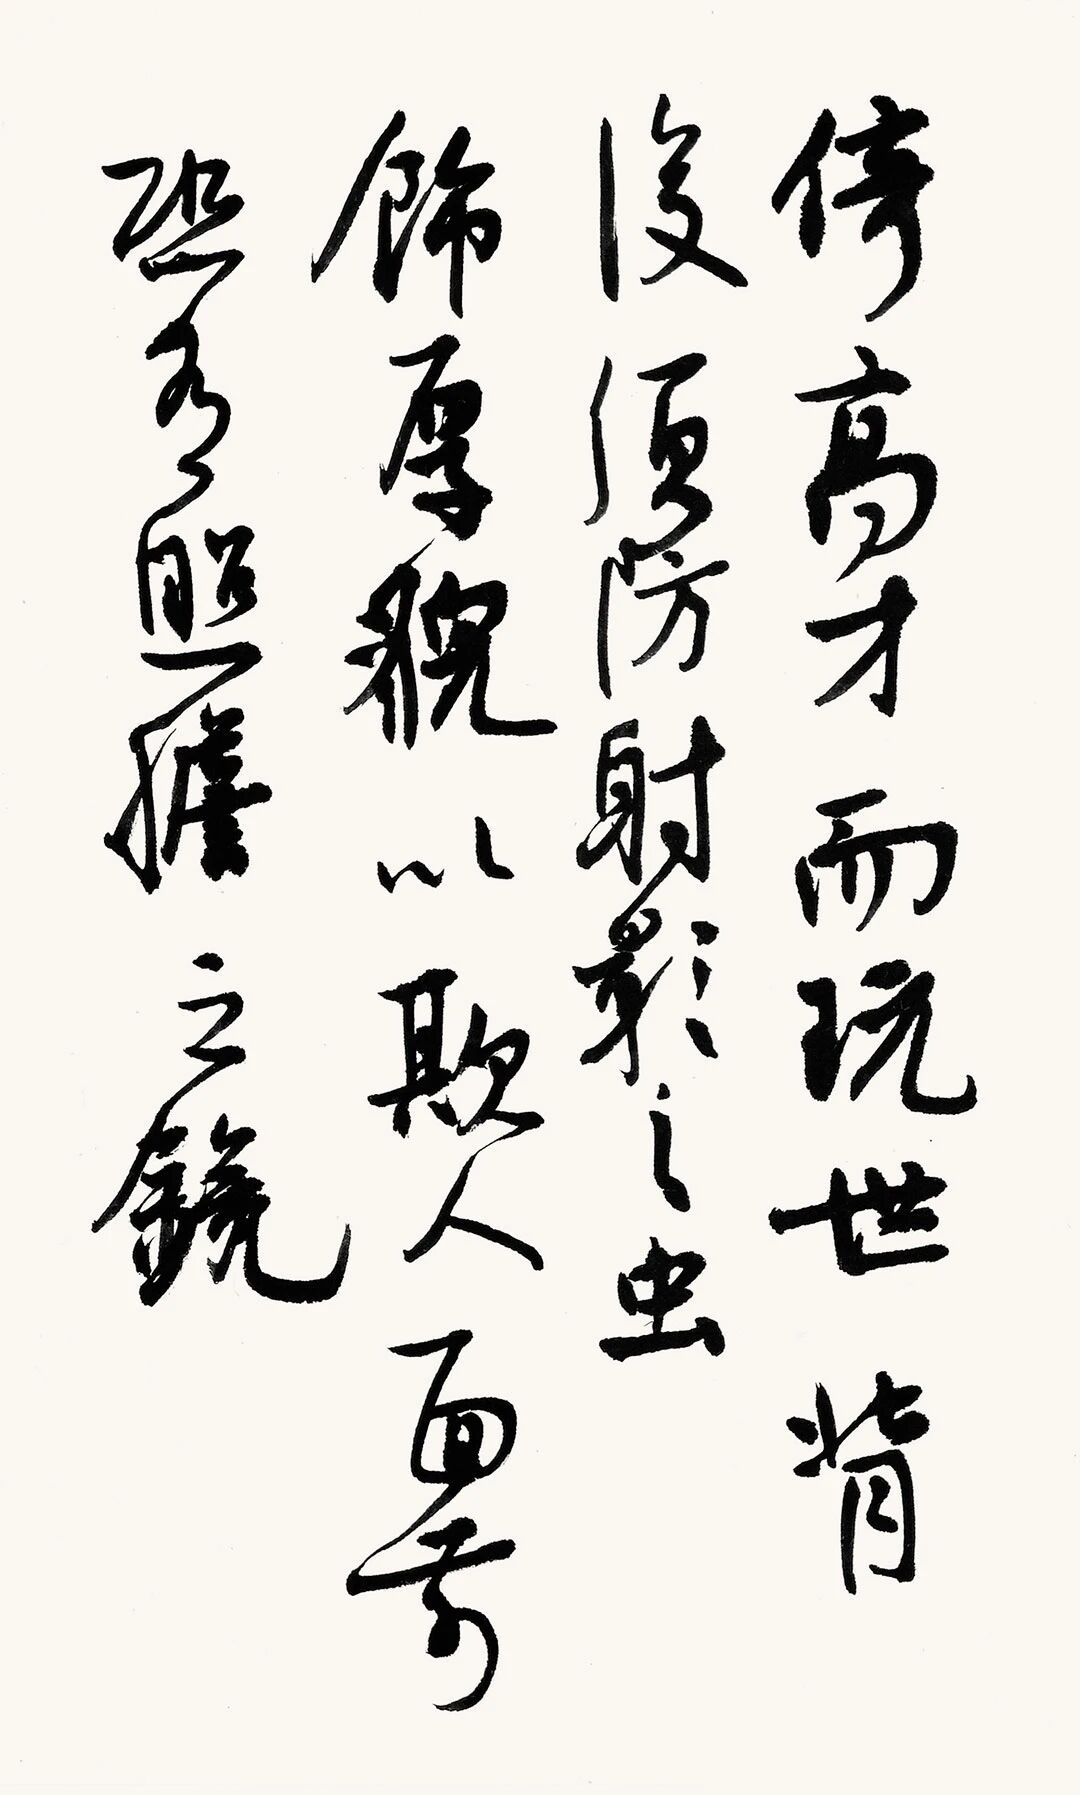 倚高才而玩世背
後須防射影之虫
飾厚貌以欺人面前
恐有照膽之鏡